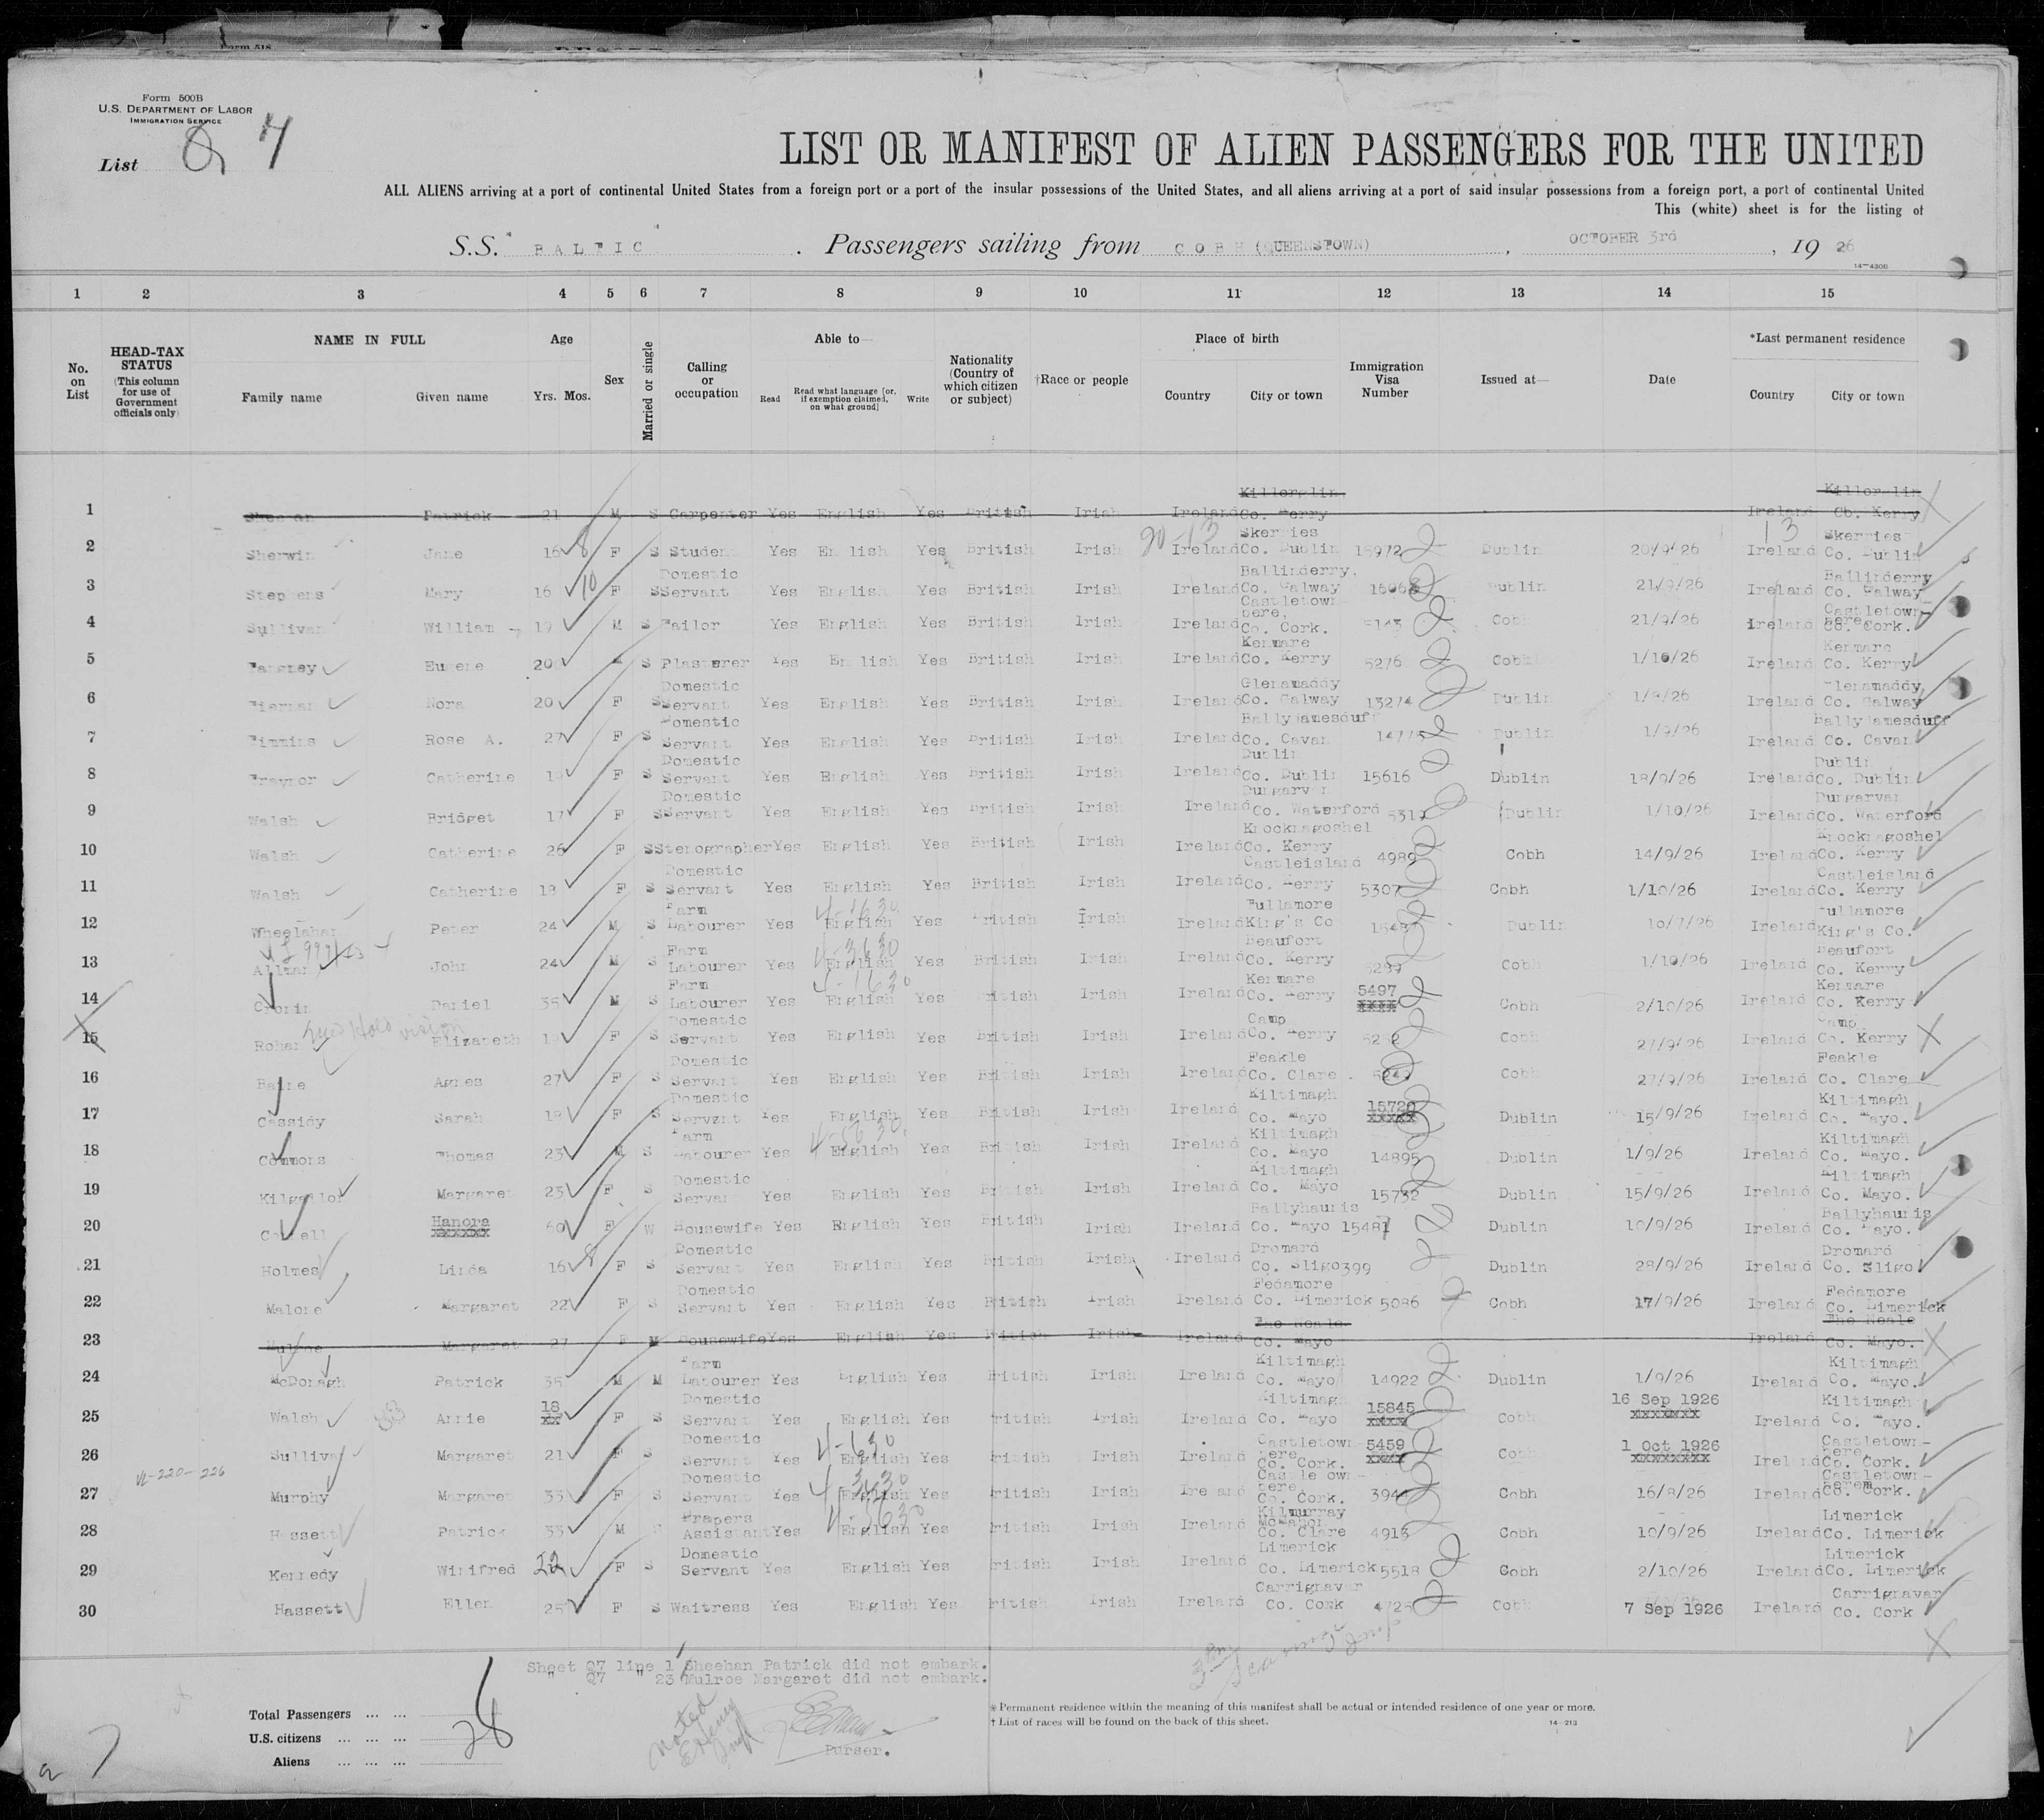 Form 500B
U.S. DEPARTMENT OF LABOR
IMMIGRATION SERVICE
List Q 7
LIST OR MANIFEST OF ALIEN PASSENGERS FOR THE UNITED
ALL ALIENS arriving at a port of continental United States from a foreign port or a port of the insular possessions of the United States, and all aliens arriving at a port of said insular possessions from a foreign port, a port of continental United
This (white) sheet is for the listing of
S.S. "BALTIC". Passengers sailing from COBH (QUEENSTOWN), OCTOBER 3rd, 19 26
14—430B
1 2 3 4 5 6 7 8 9 10 11 12 13 14 15
No. on List
HEAD-TAX STATUS (This column for use of Government officials only)
NAME IN FULL Family name Given name
Age Yrs. Mos.
Sex
Married or single
Calling or occupation
Able to— Read Read what language [or, if exemption claimed, on what ground] Write
Nationality (Country of which citizen or subject)
†Race or people
Place of birth Country City or town
Immigration Visa Number
Issued at—
Date
*Last permanent residence Country City or town
1 Patrick 21 M S Carpenter Yes English Yes British Irish Ireland Killorglin Co. Kerry Ireland Killorglin Co. Kerry
2 Sherwin Jane 16 8 F S Student Yes English Yes British Irish Ireland Skerries Co. Dublin 15972 Dublin 20/9/26 Ireland Skerries Co. Dublin
3 Stephens Mary 16 10 F S Domestic Servant Yes English Yes British Irish Ireland Ballinderry, Co. Galway Dublin 21/9/26 Ireland Ballinderry Co. Galway
4 Sullivan William 19 M S Tailor Yes English Yes British Irish Ireland Castletown bere, Co. Cork. Cobh 21/9/26 Ireland Castletown- bere Co. Cork.
5 Eugene 20 M S Plasterer Yes English Yes British Irish Ireland Kenmare Co. Kerry 5276 Cobh 1/10/26 Ireland Kenmare Co. Kerry
6 Tiernan Nora 20 F S Domestic Servant Yes English Yes British Irish Ireland Glenamaddy Co. Galway 13274 Dublin 1/9/26 Ireland Glenamaddy Co. Galway
7 Timmins Rose A. 27 F S Domestic Servant Yes English Yes British Irish Ireland Ballyjamesduff Co. Cavan Dublin 1/9/26 Ireland Ballyjamesduff Co. Cavan
8 Traynor Catherine 19 F S Domestic Servant Yes English Yes British Irish Ireland Dublin Co. Dublin 15616 Dublin 18/9/26 Ireland Dublin Co. Dublin
9 Walsh Bridget 17 F S Domestic Servant Yes English Yes British Irish Ireland Dungarvan Co. Waterford Dublin 1/10/26 Ireland Dungarvan Co. Waterford
10 Walsh Catherine 26 F S Stenographer Yes English Yes British Irish Ireland Knocknagoshel Co. Kerry 4989 Cobh 14/9/26 Ireland Knocknagoshel Co. Kerry
11 Walsh Catherine 18 F S Domestic Servant Yes English Yes British Irish Ireland Castleisland Co. Kerry 5307 Cobh 1/10/26 Ireland Castleisland Co. Kerry
12 Wheelahan Peter 24 M S Farm Labourer Yes English Yes British Irish Ireland Tullamore King's Co Dublin 10/7/26 Ireland Tullamore King's Co.
13 Allman John 24 M S Farm Labourer Yes English Yes British Irish Ireland Beaufort Co. Kerry Cobh 1/10/26 Ireland Beaufort Co. Kerry
14 Cronin Daniel 35 M S Farm Labourer Yes English Yes British Irish Ireland Kenmare Co. Kerry 5497 XXXX Cobh 2/10/26 Ireland Kenmare Co. Kerry
15 Rohan Elizabeth 19 F S Domestic Servant Yes English Yes British Irish Ireland Camp Co. Kerry Cobh 27/9/26 Ireland Camp Co. Kerry
16 Agnes 27 F S Domestic Servant Yes English Yes British Irish Ireland Feakle Co. Clare Cobh 27/9/26 Ireland Feakle Co. Clare
17 Cassidy Sarah 18 F S Domestic Servant Yes English Yes British Irish Ireland Kiltimagh Co. Mayo 15720 XXXXX Dublin 15/9/26 Ireland Kiltimagh Co. Mayo.
18 Commons Thomas 23 M S Farm Labourer Yes English Yes British Irish Ireland Kiltimagh Co. Mayo 14895 Dublin 1/9/26 Ireland Kiltimagh Co. Mayo.
19 Kilgallon Margaret 23 F S Domestic Servant Yes English Yes British Irish Ireland Kiltimagh Co. Mayo 15732 Dublin 15/9/26 Ireland Kiltimagh Co. Mayo.
20 Hanora XXXXXX 60 F W Housewife Yes English Yes British Irish Ireland Ballyhaunis Co. Mayo 15487 Dublin 10/9/26 Ireland Ballyhaunis Co. Mayo.
21 Holmes Linda 16 8 F S Domestic Servant Yes English Yes British Irish Ireland Dromard Co. Sligo 399 Dublin 28/9/26 Ireland Dromard Co. Sligo
22 Malone Margaret 22 F S Domestic Servant Yes English Yes British Irish Ireland Fedamore Co. Limerick 5086 Cobh 17/9/26 Ireland Fedamore Co. Limerick
23 Mulroe Margaret 27 F M Housewife Yes English Yes British Irish Ireland The Neale Co. Mayo Ireland The Neale Co. Mayo.
24 McDonagh Patrick 35 M M Farm Labourer Yes English Yes British Irish Ireland Kiltimagh Co. Mayo 14922 Dublin 1/9/26 Ireland Kiltimagh Co. Mayo.
25 Walsh Annie 18 XX F S Domestic Servant Yes English Yes British Irish Ireland Kiltimagh Co. Mayo 15845 XXXX Cobh 16 Sep 1926 XXXXXXX Ireland Kiltimagh Co. Mayo.
26 Sullivan Margaret 21 F S Domestic Servant Yes English Yes British Irish Ireland Castletown- bere Co. Cork. 5459 XXXX Cobh 1 Oct 1926 XXXXXXXX Ireland Castletown- bere Co. Cork.
27 Murphy Margaret 35 F S Domestic Servant Yes English Yes British Irish Ireland Castletown- bere, Co. Cork. Cobh 16/8/26 Ireland Castletown- Co. Cork.
28 Hassett Patrick 33 M S Drapers Assistant Yes English Yes British Irish Ireland Kilmurray McMahon Co. Clare 4913 Cobh 10/9/26 Ireland Limerick Co. Limerick
29 Kennedy Winifred 22 F S Domestic Servant Yes English Yes British Irish Ireland Limerick Co. Limerick 5518 Cobh 2/10/26 Ireland Limerick Co. Limerick
30 Hassett Ellen 25 F S Waitress Yes English Yes British Irish Ireland Carrignavar Co. Cork Cobh 7 Sep 1926 Ireland Carrignavar Co. Cork
Sheet Q7 line 1 Sheehan Patrick did not embark.
" Q7 " 23 Mulroe Margaret did not embark.
Total Passengers ... ...
U.S. citizens ... ... ...
Aliens ... ... ...
28
Noted
Purser.
* Permanent residence within the meaning of this manifest shall be actual or intended residence of one year or more.
† List of races will be found on the back of this sheet.
14—213